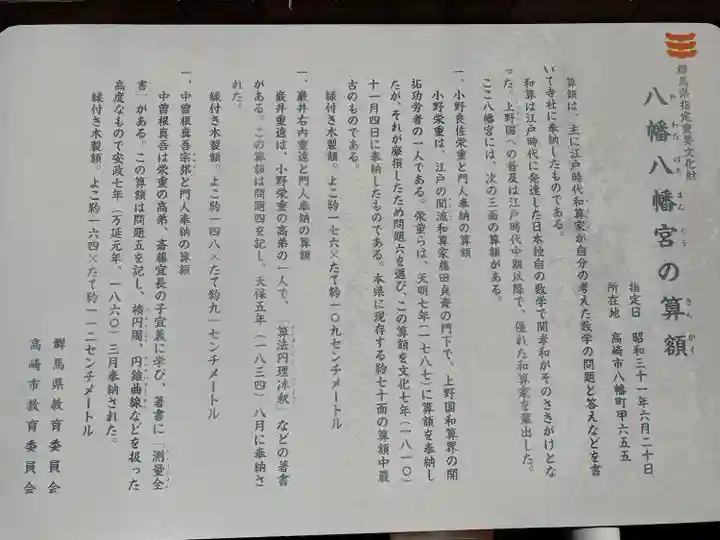 群馬県指定重要文化財
八幡八幡宮の算額
やわたはちまんぐう さんがく
指定日 昭和三十一年六月二十日
所在地 高崎市八幡町甲六五五
算額は、主に江戸時代和算家が自分の考えた数学の問題と答えなどを書
いて寺社に奉納したものである。
和算は江戸時代に発達した日本独自の数学で関孝和がそのさきがけとな
った。上野国への普及は江戸時代中期以降で、優れた和算家を輩出した。
ここ八幡宮には、次の三面の算額がある。
一、小野良佐栄重と門人奉納の算額
小野栄重は、江戸の関流和算家藤田貞資の門下で、上野国和算界の開
拓功労者の一人である。栄重らは、天明七年(一七八七)に算額を奉納し
たが、それが廃損したため問題六を選び、この算額を文化七年(一八一〇)
十一月四日に奉納したものである。本県に現存する約七十面の算額中最
古のものである。
縁付き木製額。よこ約一七六×たて約一〇九センチメートル
一、巌井右内重遠と門人奉納の算額
巌井重遠は、小野栄重の高弟の一人で、「算法円理冰釈」などの著書
がある。この算額は問題四を記し、天保五年(一八三四)八月に奉納さ
れた。
縁付き木製額。よこ約一四八×たて約九一センチメートル
一、中曽根真吾宗邡と門人奉納の算額
中曽根真吾は栄重の高弟、斎藤宜長の子宜義に学び、著書に「測量全
書」がある。この算額は問題五を記し、楕円周、円錐曲線などを扱った
高度なもので安政七年(万延元年、一八六〇)三月奉納された。
縁付き木製額。よこ約一六四×たて約一一二センチメートル
群馬県教育委員会
高崎市教育委員会